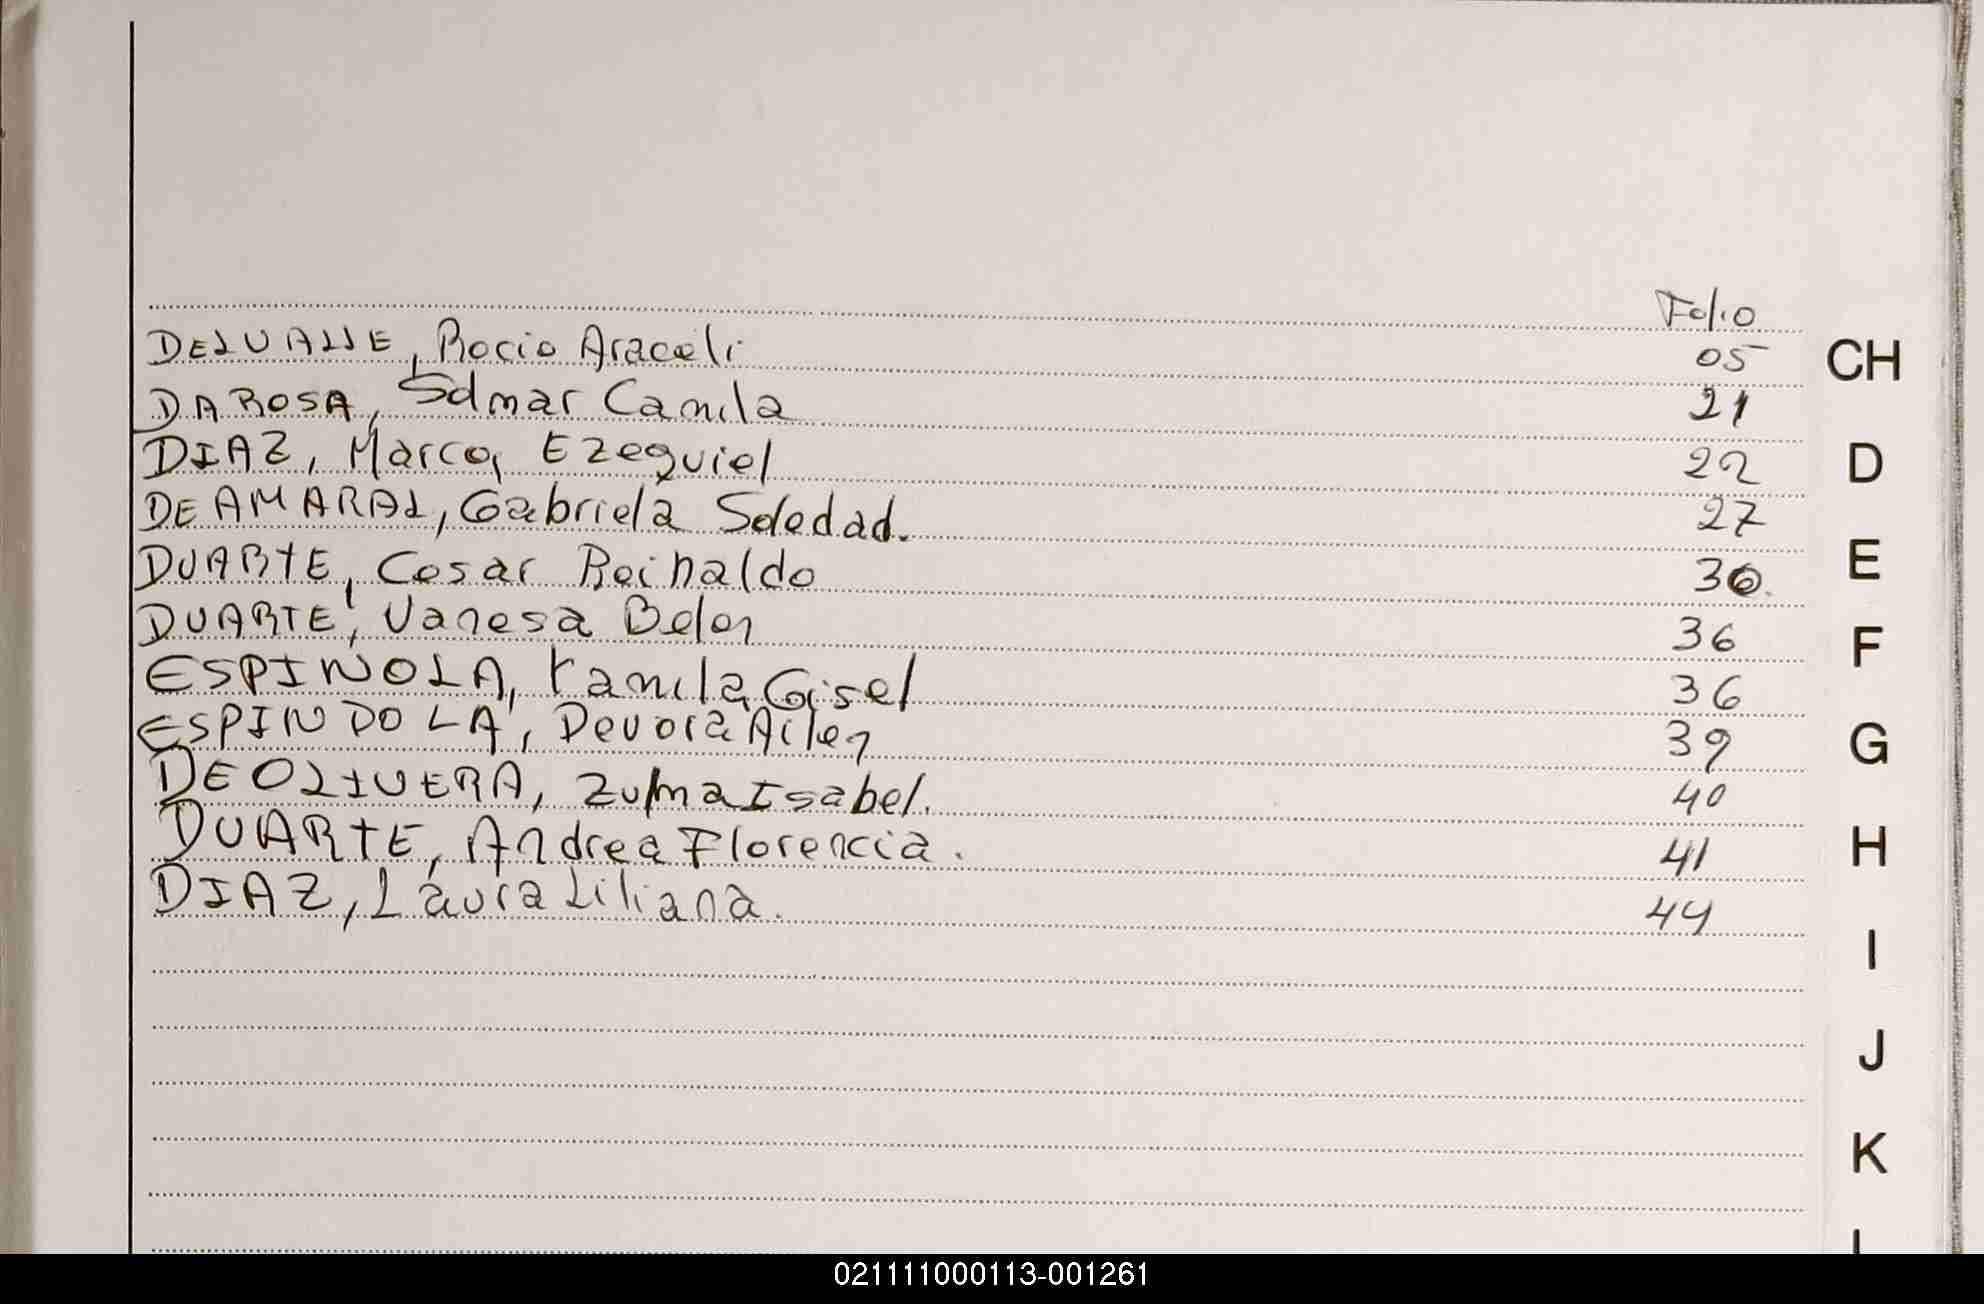 Folio
DELVALLE, Rocio Araceli 05
DA ROSA, Sdmar Camila 21
DIAZ, Marco, Ezequiel 22
DE AMARAL, Gabriela Soledad. 27
DUARTE, Cesar Reinaldo 30.
DUARTE, Vanesa Belen 36
ESPINOLA, Kamila Gisel 36
ESPINDOLA, Devora Ailen 39
DE OLIVERA, Zulma Isabel. 40
DUARTE, Andrea Florencia. 41
DIAZ, Laura Liliana. 44
CH
D
E
F
G
H
I
J
K
L
021111000113-001261